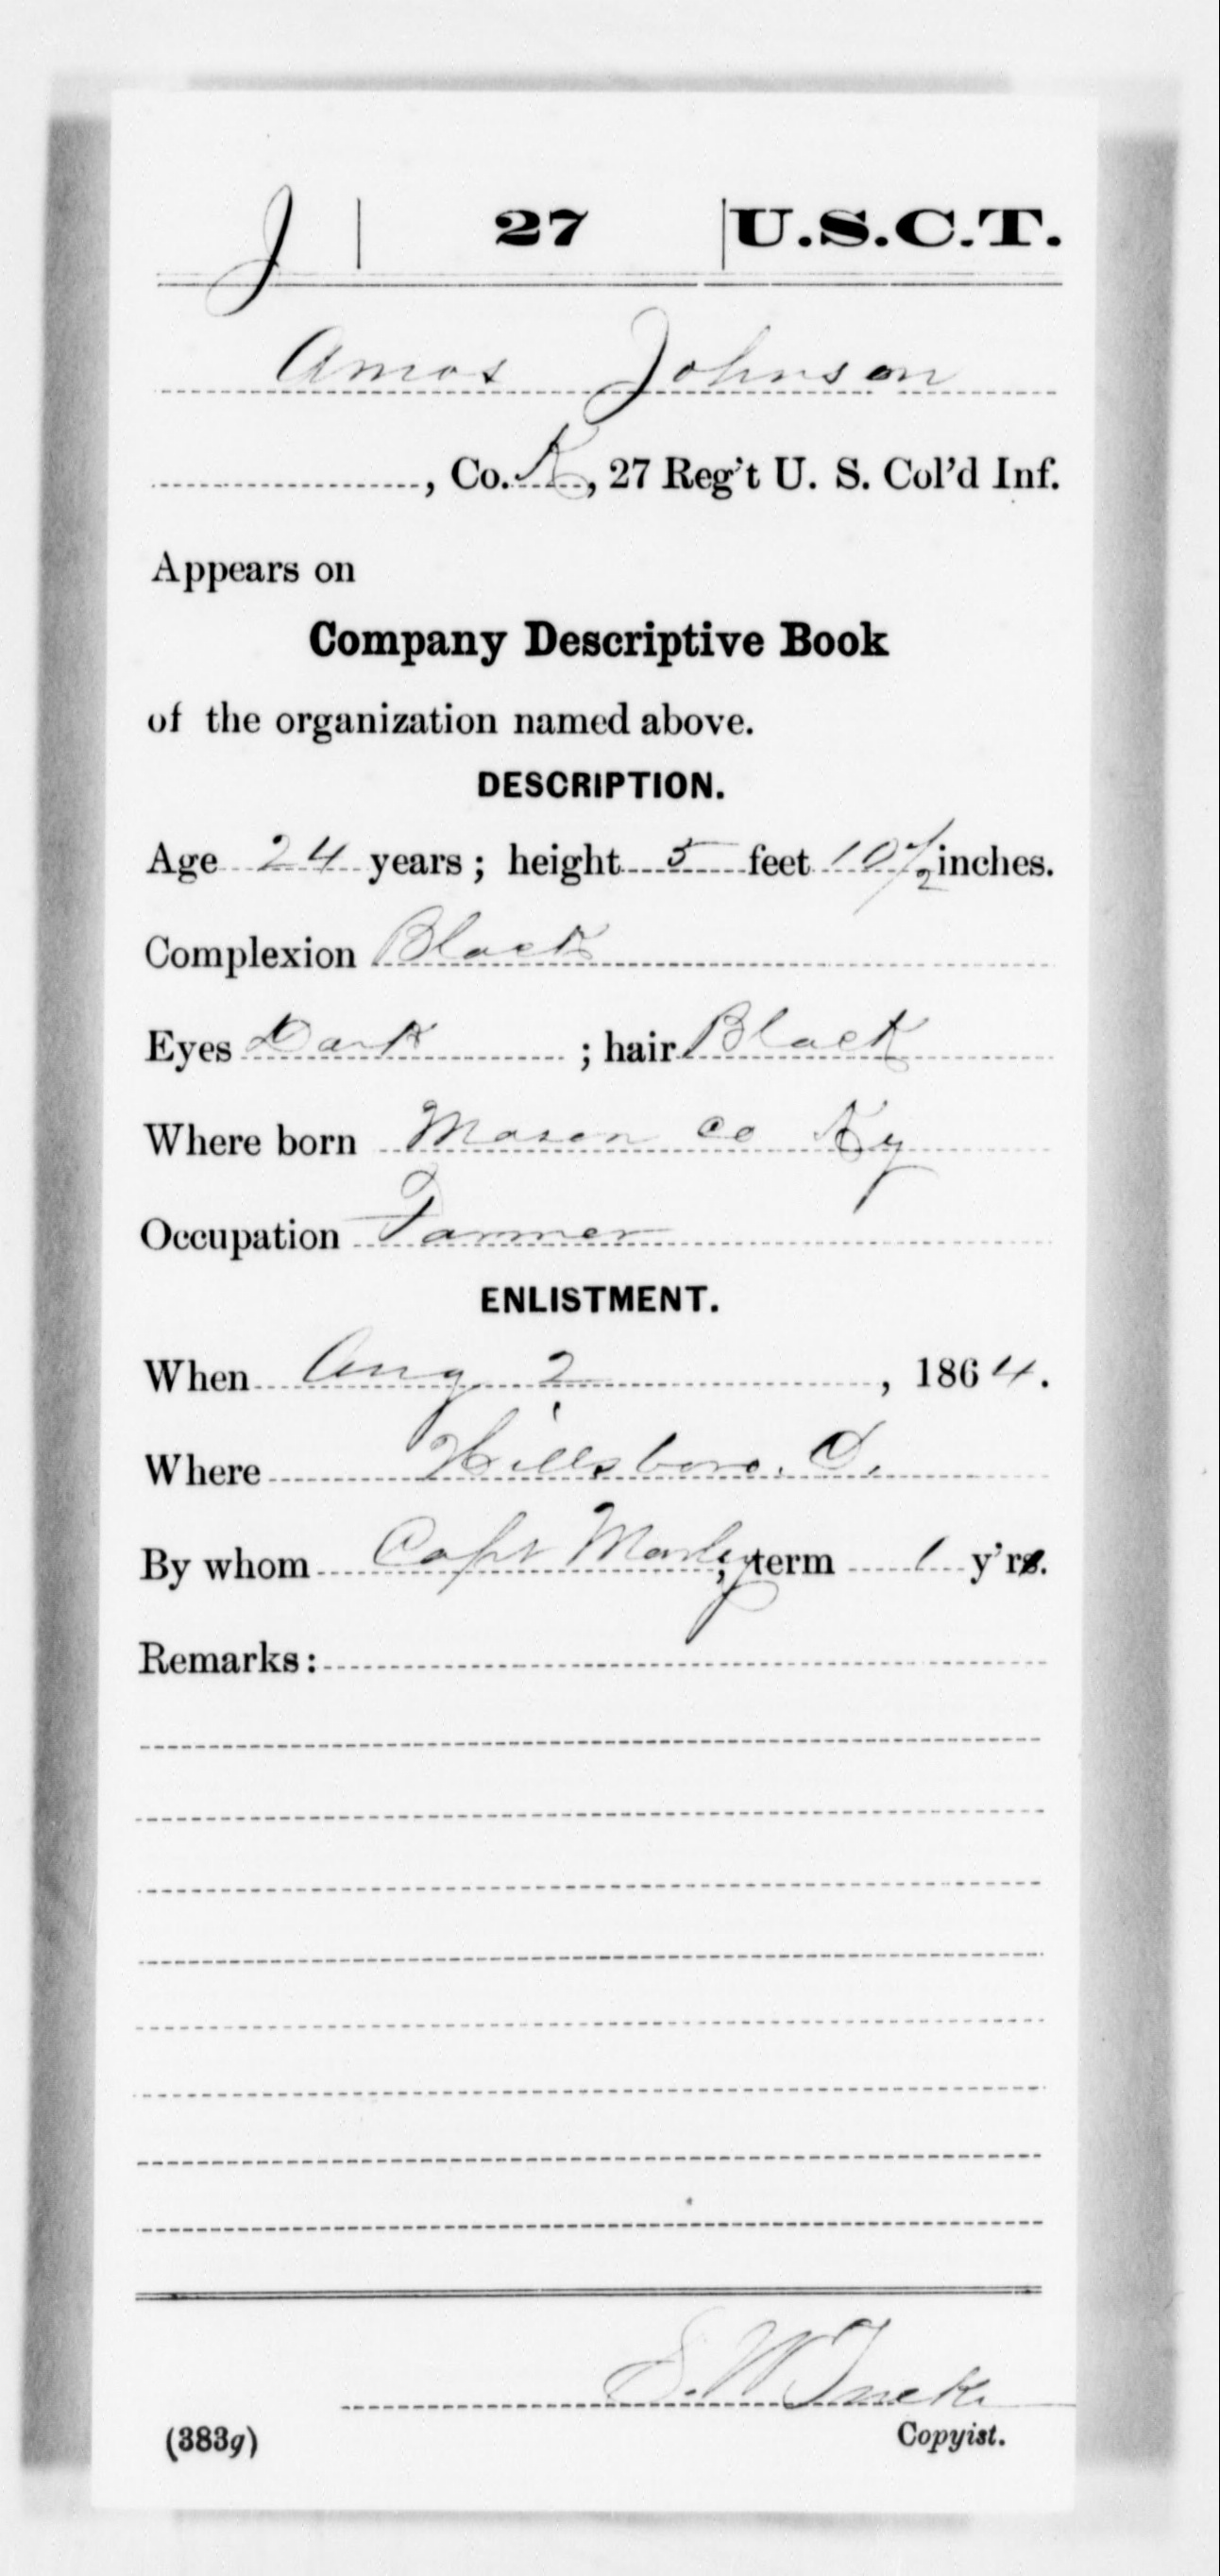 J | 27 | U.S.C.T.
Amos Johnson
, Co. K, 27 Reg't U. S. Col'd Inf.
Appears on
Company Descriptive Book
of the organization named above.
DESCRIPTION.
Age 24 years; height 5 feet 10 1/2 inches.
Complexion Black
Eyes Dark ; hair Black
Where born Mason Co Ky
Occupation Farmer
ENLISTMENT.
When Aug 2, 1864.
Where Hillsboro. O.
By whom Capt Manly; term 1 y'rs.
Remarks:
S. W.
(383g) Copyist.